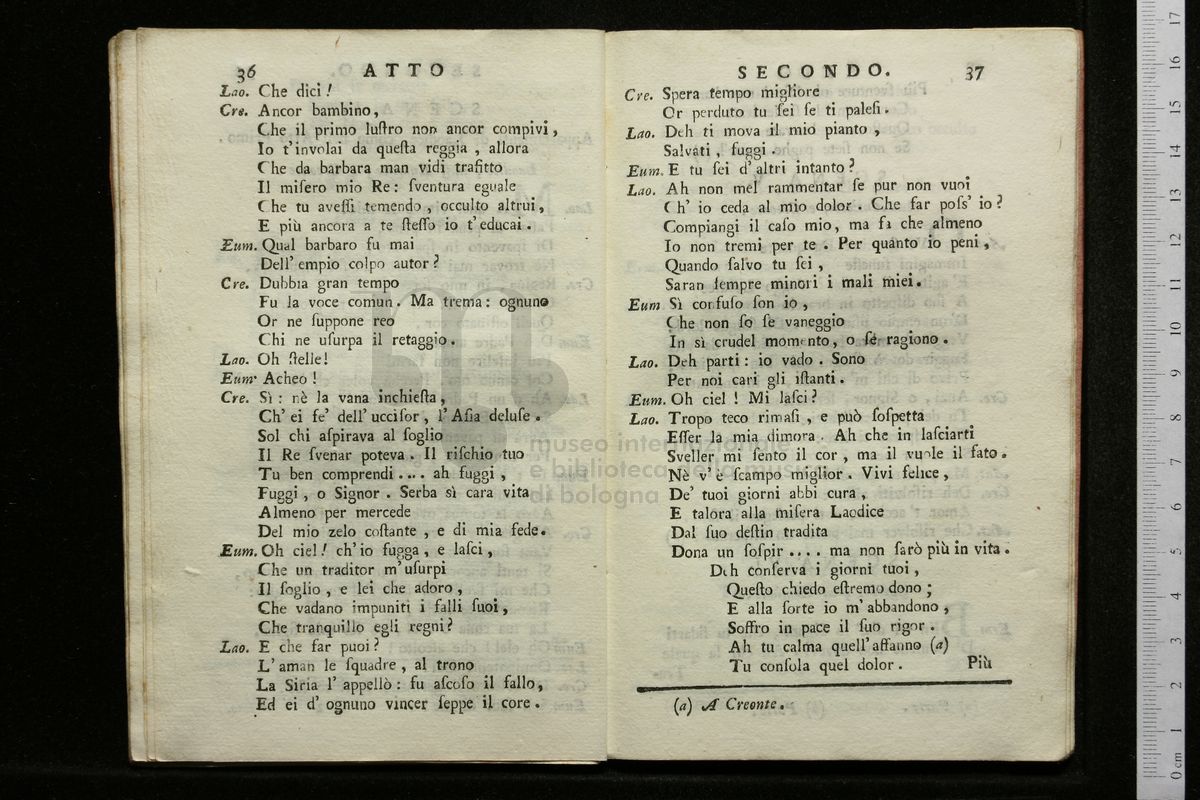 36 ATTO
Lao. Che dici!
Cre. Ancor bambino,
Che il primo luſtro non ancor compivi,
Io t'involai da queſta reggia, allora
Che da barbara man vidi trafitto
Il miſero mio Re: ſventura eguale
Che tu aveſſi temendo, occulto altrui,
E più ancora a te ſteſſo io t'educai.
Eum. Qual barbaro fu mai
Dell' empio colpo autor?
Cre. Dubbia gran tempo
Fu la voce comun. Ma trema: ognuno
Or ne ſuppone reo
Chi ne uſurpa il retaggio.
Lao. Oh ſtelle!
Eum. Acheo!
Cre. Sì: nè la vana inchieſta,
Ch' ei fe' dell' ucciſor, l'Aſia deluſe.
Sol chi aſpirava al ſoglio
Il Re ſvenar poteva. Il riſchio tuo
Tu ben comprendi .... ah fuggi,
Fuggi, o Signor. Serba sì cara vita
Almeno per mercede
Del mio zelo coſtante, e di mia fede.
Eum. Oh ciel! ch'io fugga, e laſci,
Che un traditor m'uſurpi
Il ſoglio, e lei che adoro,
Che vadano impuniti i falli ſuoi,
Che tranquillo egli regni?
Lao. E che far puoi?
L'aman le ſquadre, al trono
La Siria l'appellò: fu aſcoſo il fallo,
Ed ei d'ognuno vincer ſeppe il core.
SECONDO. 37
Cre. Spera tempo migliore
Or perduto tu ſei ſe ti paleſi.
Lao. Deh ti mova il mio pianto,
Salvati, fuggi.
Eum. E tu ſei d'altri intanto?
Lao. Ah non mel rammentar ſe pur non vuoi
Ch' io ceda al mio dolor. Che far poſs' io?
Compiangi il caſo mio, ma fa che almeno
Io non tremi per te. Per quanto io peni,
Quando ſalvo tu ſei,
Saran ſempre minori i mali miei.
Eum Sì confuſo ſon io,
Che non ſo ſe vaneggio
In sì crudel momento, o ſe ragiono.
Lao. Deh parti: io vado. Sono
Per noi cari gli iſtanti.
Eum. Oh ciel! Mi laſci?
Lao. Tropo teco rimaſi, e può ſoſpetta
Eſſer la mia dimora. Ah che in laſciarti
Sveller mi ſento il cor, ma il vuole il fato.
Nè v'è ſcampo miglior. Vivi felice,
De' tuoi giorni abbi cura,
E talora alla miſera Laodice
Dal ſuo deſtin tradita
Dona un ſoſpir .... ma non ſarò più in vita.
Deh conſerva i giorni tuoi,
Queſto chiedo eſtremo dono;
E alla ſorte io m'abbandono,
Soffro in pace il ſuo rigor.
Ah tu calma quell' affanno (a)
Tu conſola quel dolor.
Più
(a) A Creonte.
museo internazionale
e biblioteca della musica
di bologna
0 cm 1 2 3 4 5 6 7 8 9 10 11 12 13 14 15 16 17